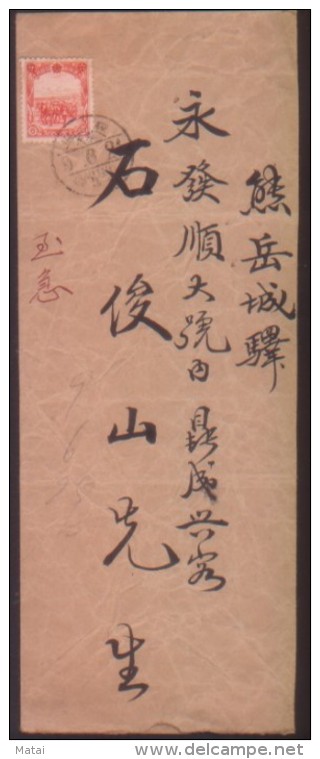 熊岳城驛
永發順大號內
鼎成興寄
石俊山先生
至急
Matai
www.delcampe.net